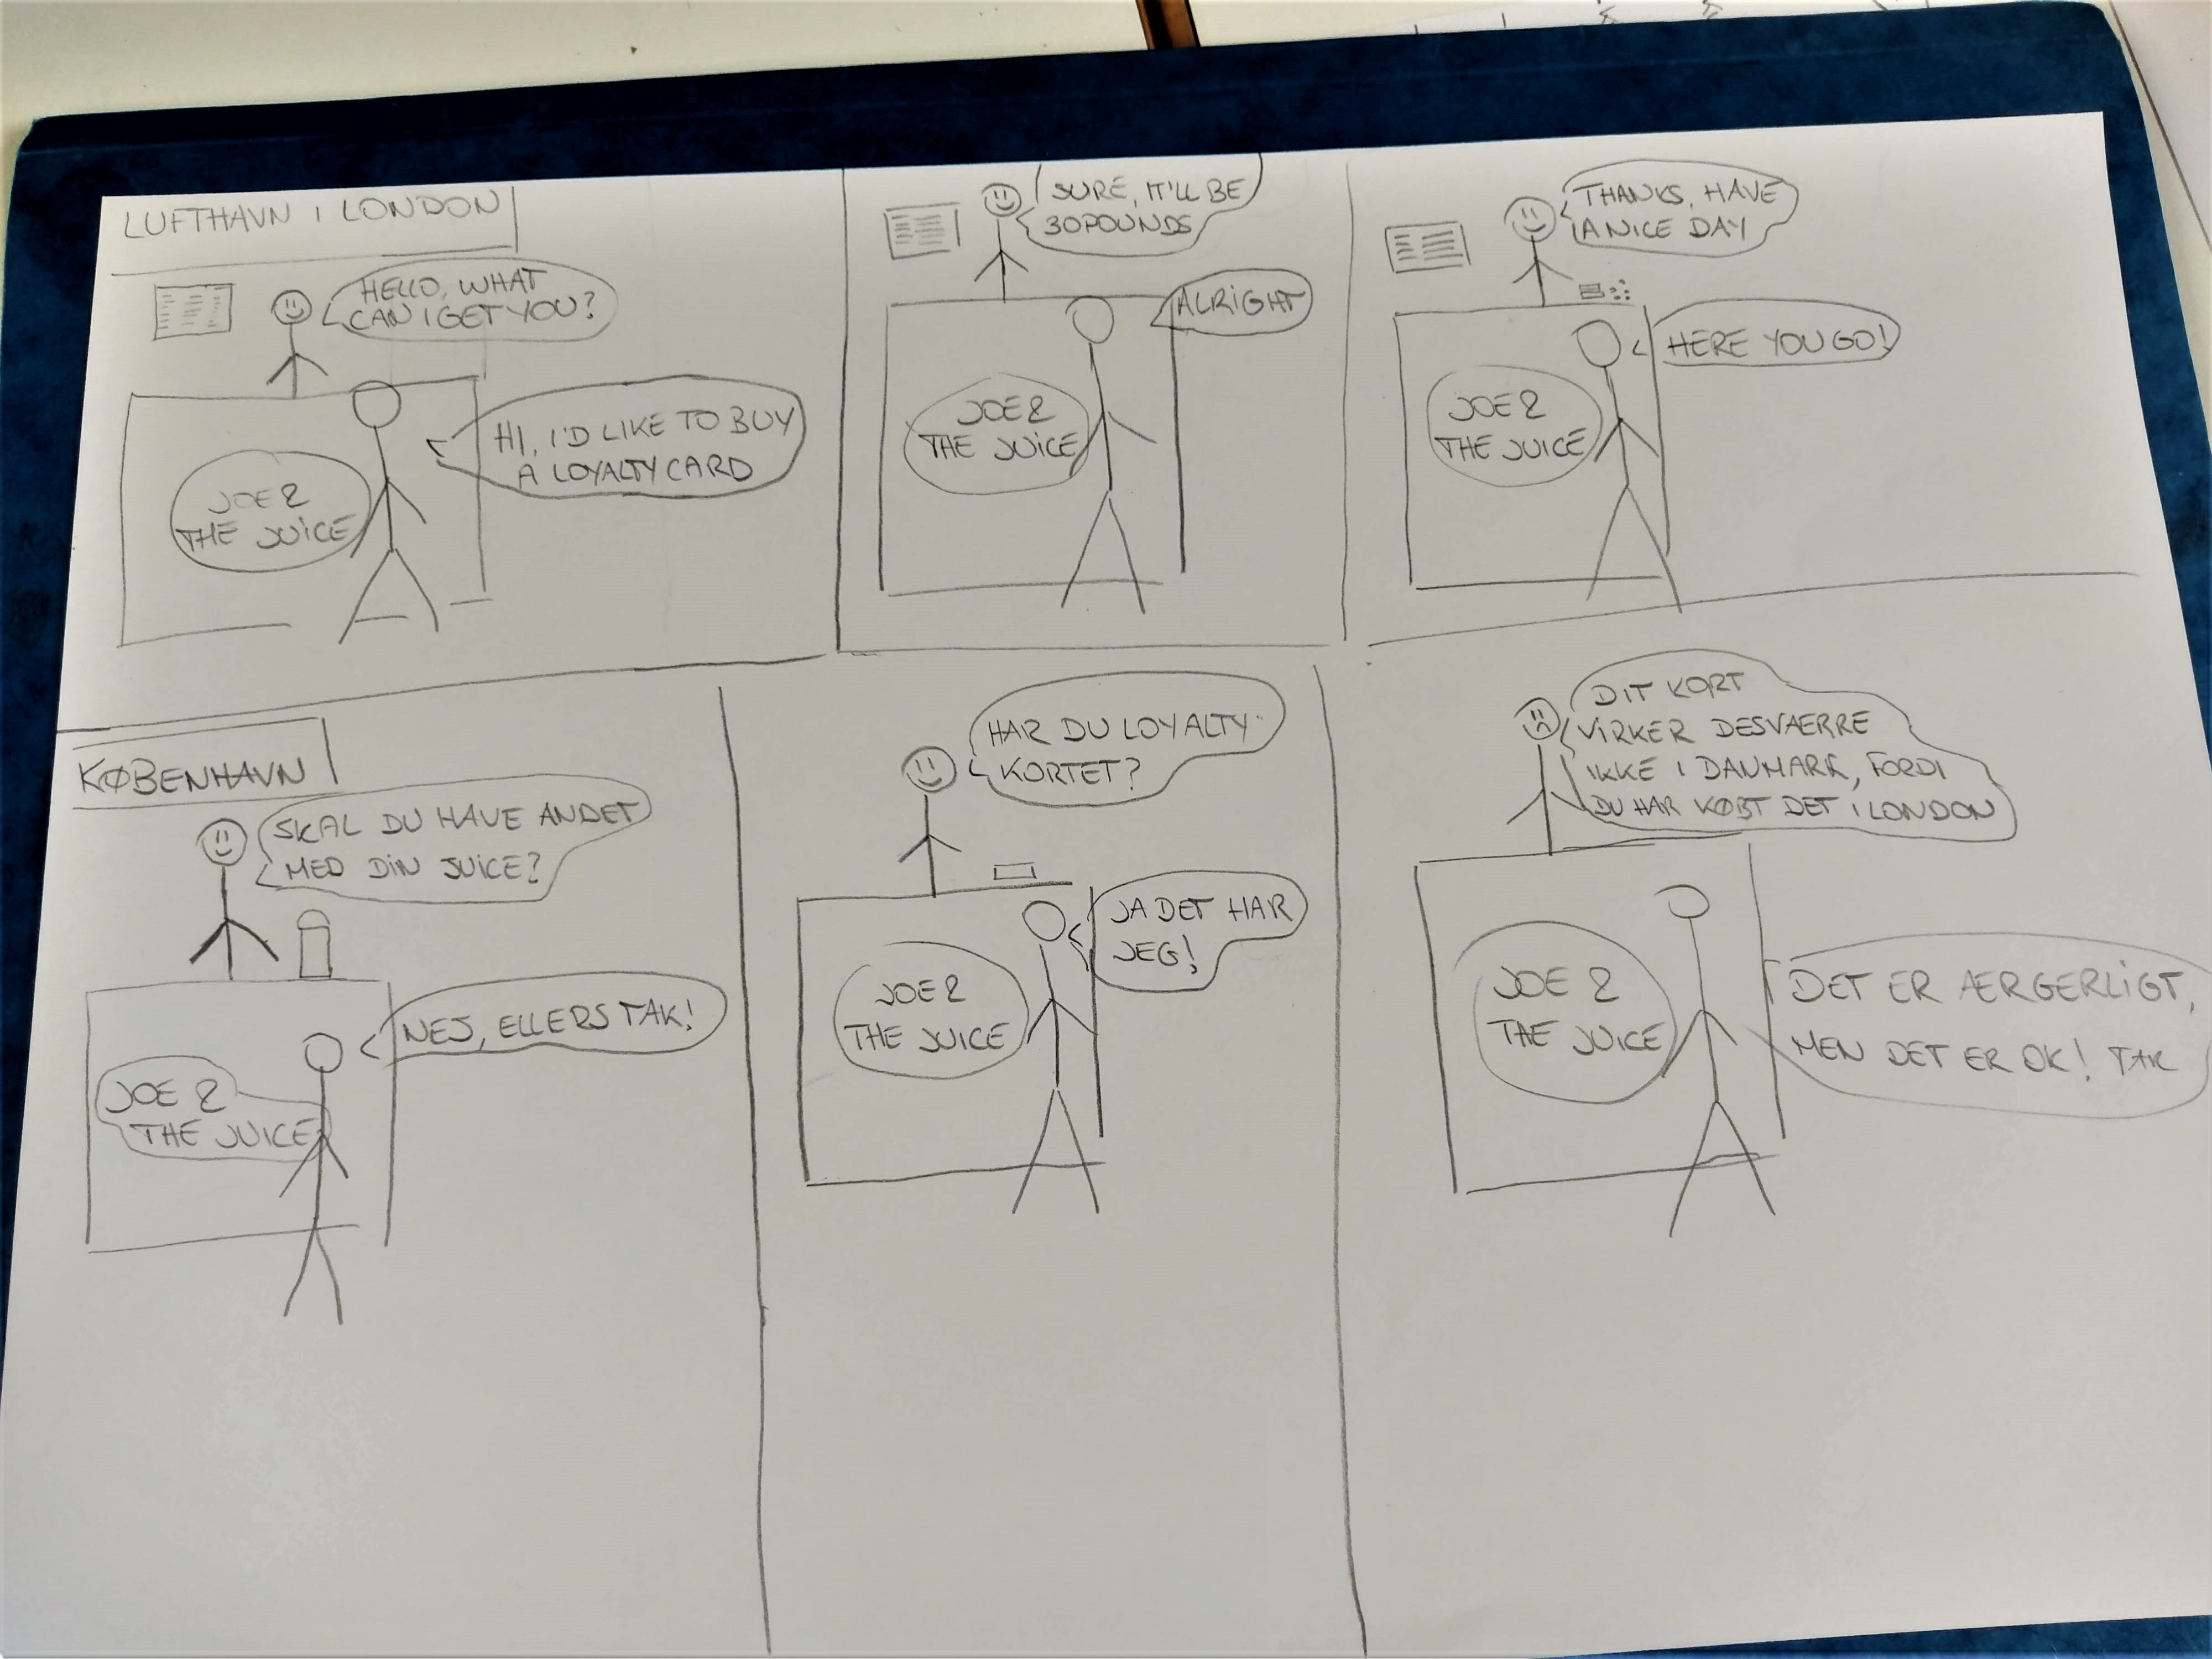 LUFTHAVN I LONDON
HELLO, WHAT
CAN I GET YOU?
HI, I'D LIKE TO BUY
A LOYALTY CARD
JOE &
THE JUICE
SURE, IT'LL BE
30 POUNDS
ALRIGHT
JOE &
THE JUICE
THANKS, HAVE
A NICE DAY
HERE YOU GO!
JOE &
THE JUICE
KØBENHAVN
SKAL DU HAVE ANDET
MED DIN JUICE?
NEJ, ELLERS TAK!
JOE &
THE JUICE
HAR DU LOYALTY-
KORTET?
JA DET HAR
JEG!
JOE &
THE JUICE
DIT KORT
VIRKER DESVAERRE
IKKE I DANMARK, FORDI
DU HAR KØBT DET I LONDON
DET ER ÆRGERLIGT,
MEN DET ER OK! TAK
JOE &
THE JUICE